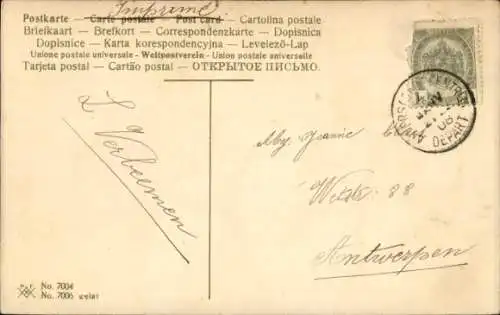 Imprimé
Postkarte — Carte postale — Post card — Cartolina postale
Briefkaart — Brefkort — Correspondenzkarte — Dopisnica
Dopisnice — Karta korespondencyjna — Levelező-Lap
Unione postale universale - Weltpostverein - Union postale universelle
Tarjeta postal — Cartão postal — ОТКРЫТОЕ ПИСЬМО.
DEPART
08
L. Verbeemen
Jeanie
88
Antwerpen
No. 7004
No. 7006